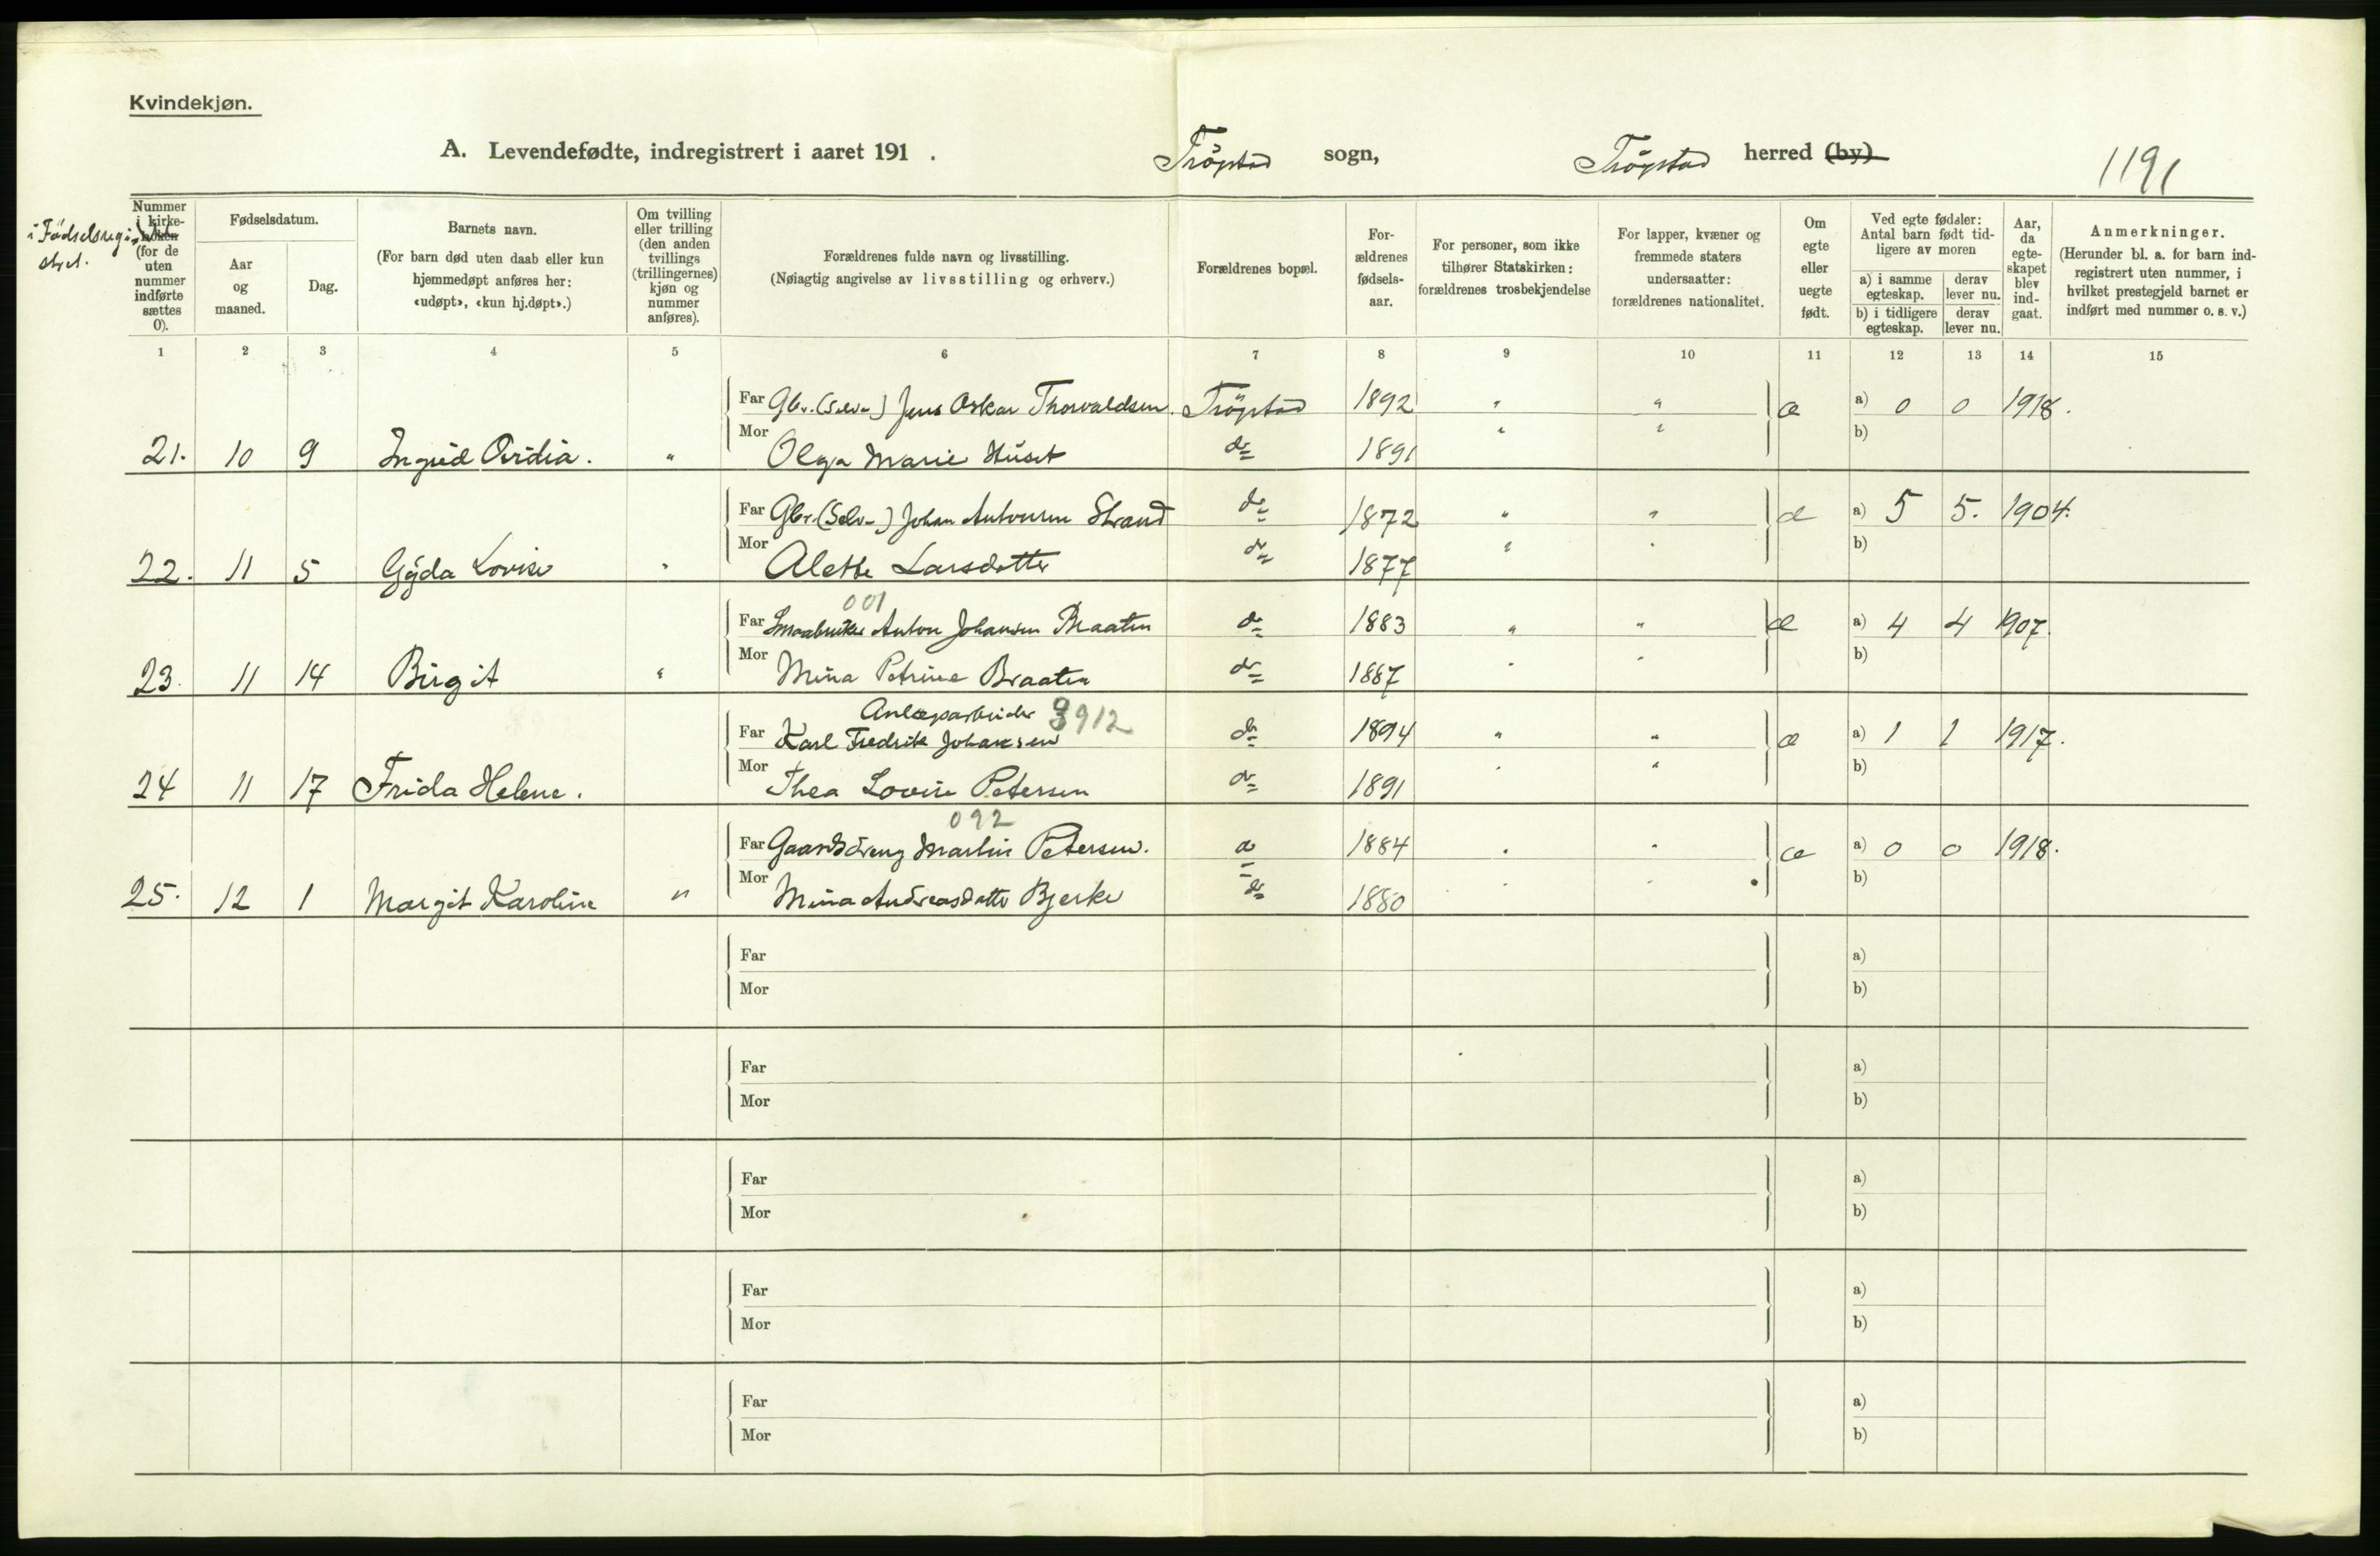 Kvindekjøn.
A. Levendefødte, indregistrert i aaret 191 . Trögstad sogn, Trögstad herred (by) 1191
i Födselsregi-
stret.
Nummer i kirke-boken (for de uten nummer indførte sættes 0).
Fødselsdatum.
Aar og maaned.
Dag.
Barnets navn.
(For barn død uten daab eller kun hjemmedøpt anføres her: «udøpt», «kun hj.døpt».)
Om tvilling eller trilling (den anden tvillings (trillingernes) kjøn og nummer anføres).
Forældrenes fulde navn og livsstilling.
(Nøiagtig angivelse av livsstilling og erhverv.)
Forældrenes bopæl.
For-ældrenes fødsels-aar.
For personer, som ikke tilhører Statskirken: forældrenes trosbekjendelse
For lapper, kvæner og fremmede staters undersaatter: forældrenes nationalitet.
Om egte eller uegte født.
Ved egte fødsler: Antal barn født tid-ligere av moren
a) i samme egteskap.
derav lever nu.
b) i tidligere egteskap.
derav lever nu.
Aar, da egte-skapet blev ind-gaat.
Anmerkninger.
(Herunder bl. a. for barn ind-registrert uten nummer, i hvilket prestegjeld barnet er indført med nummer o. s. v.)
1 2 3 4 5 6 7 8 9 10 11 12 13 14 15
Far Gbr. (Selv-) Jens Oskar Thorvaldsen. Trögstad 1892 " " æ a) 0 0 1918.
21. 10 9 Ingrid Ovidia. " Mor Olga Marie Huset do 1891 " " b)
Far Gbr. (Selv-) Johan Antonsen Strand do 1872 " " æ a) 5 5. 1904.
22. 11 5 Gyda Lovise " Mor Alette Larsdatter do 1877 " " b)
001
Far Smaabruker Anton Johansen Braaten do 1883 " " æ a) 4 4 1907.
23. 11 14 Birgit " Mor Mina Petrine Braaten do 1887 " " b)
Anlægsarbeider 912
Far Karl Fredrik Johansen do 1894 " " æ a) 1 1 1917.
24 11 17 Frida Helene. Mor Thea Lovise Petersen do 1891 " " b)
092
Far Gaardsdreng Martin Petersen. do 1884 " " æ a) 0 0 1918.
25. 12 1 Margit Karoline " Mor Mina Andreasdatter Bjerke do 1880 " " b)
Far a)
Mor b)
Far a)
Mor b)
Far a)
Mor b)
Far a)
Mor b)
Far a)
Mor b)